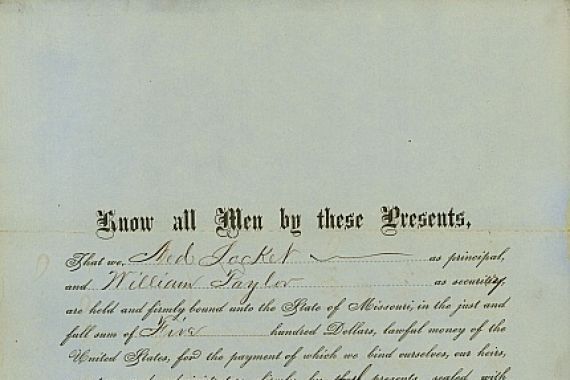 Know all Men by these Presents,
That we, Ned Locket as principal,
and William Taylor as security,
are held and firmly bound unto the State of Missouri, in the just and
full sum of Five hundred Dollars, lawful money of the
United States, for the payment of which we bind ourselves, our heirs,
firmly by these presents, sealed with